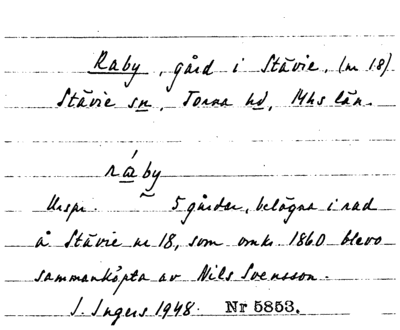 Raby, gård i Stävie, (nr 18)
Stävie sn, Torna hd, Mhs län.
ráby
Urspr. 5 gårdar, belägna i rad
å Stävie nr 18, som omkr. 1860 blevo
sammanköpta av Nils Svensson.
I. Ingers 1948. Nr 5853.